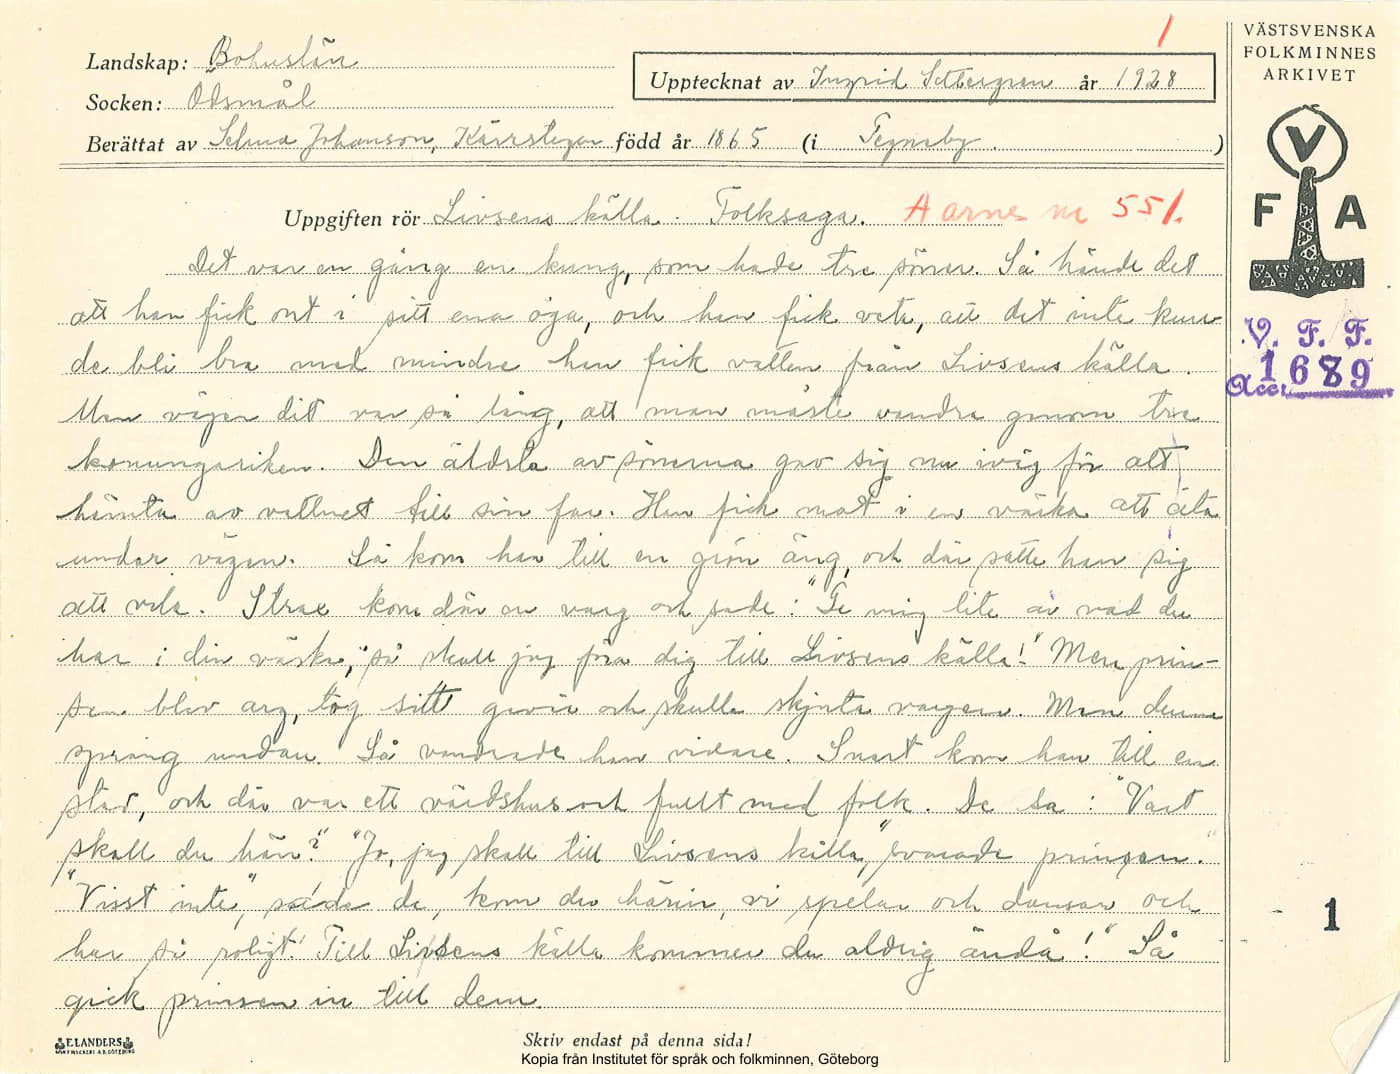 1
VÄSTSVENSKA
FOLKMINNES
ARKIVET
Landskap: Bohuslän
Upptecknat av Ingrid år 1928
Socken: Ödsmål
Berättat av Selma Johanson, född år 1865 (i )
V
F A
Uppgiften rör Livsens källa. Folksaga. Aarnes nr 551.
Det var en gång en kung, som hade tre söner. Så hände det
att han fick ont i sitt ena öga, och han fick veta, att det inte kun-
de bli bra med mindre han fick vatten från Livsens källa.
V. F. F.
Acc. 1689
Men vägen dit var så lång, att man måste vandra genom tre
konungariken. Den äldsta av sönerna gav sig nu iväg för att
hämta av vattnet till sin far. Han fick mat i en väska att äta
under vägen. Så kom han till en grön äng, och där satte han sig
att vila. Strax kom där en varg och sade: "Ge mig lite av vad du
har i din väska, så skall jag föra dig till Livsens källa!" Men prin-
sen blev arg, tog sitt gevär och skulle skjuta vargen. Men denne
sprang undan. Så vandrade han vidare. Snart kom han till en
stad, och där var ett värdshus och fullt med folk. De sa: "Vart
skall du hän?" "Jo, jag skall till Livsens källa," svarade prinsen.
"Visst inte," sade de, kom du härin, vi spelar och dansar och
har så roligt! Till Livsens källa kommer du aldrig ändå!" Så
gick prinsen in till dem.
1
ELANDERS
Skriv endast på denna sida!
Kopia från Institutet för språk och folkminnen, Göteborg